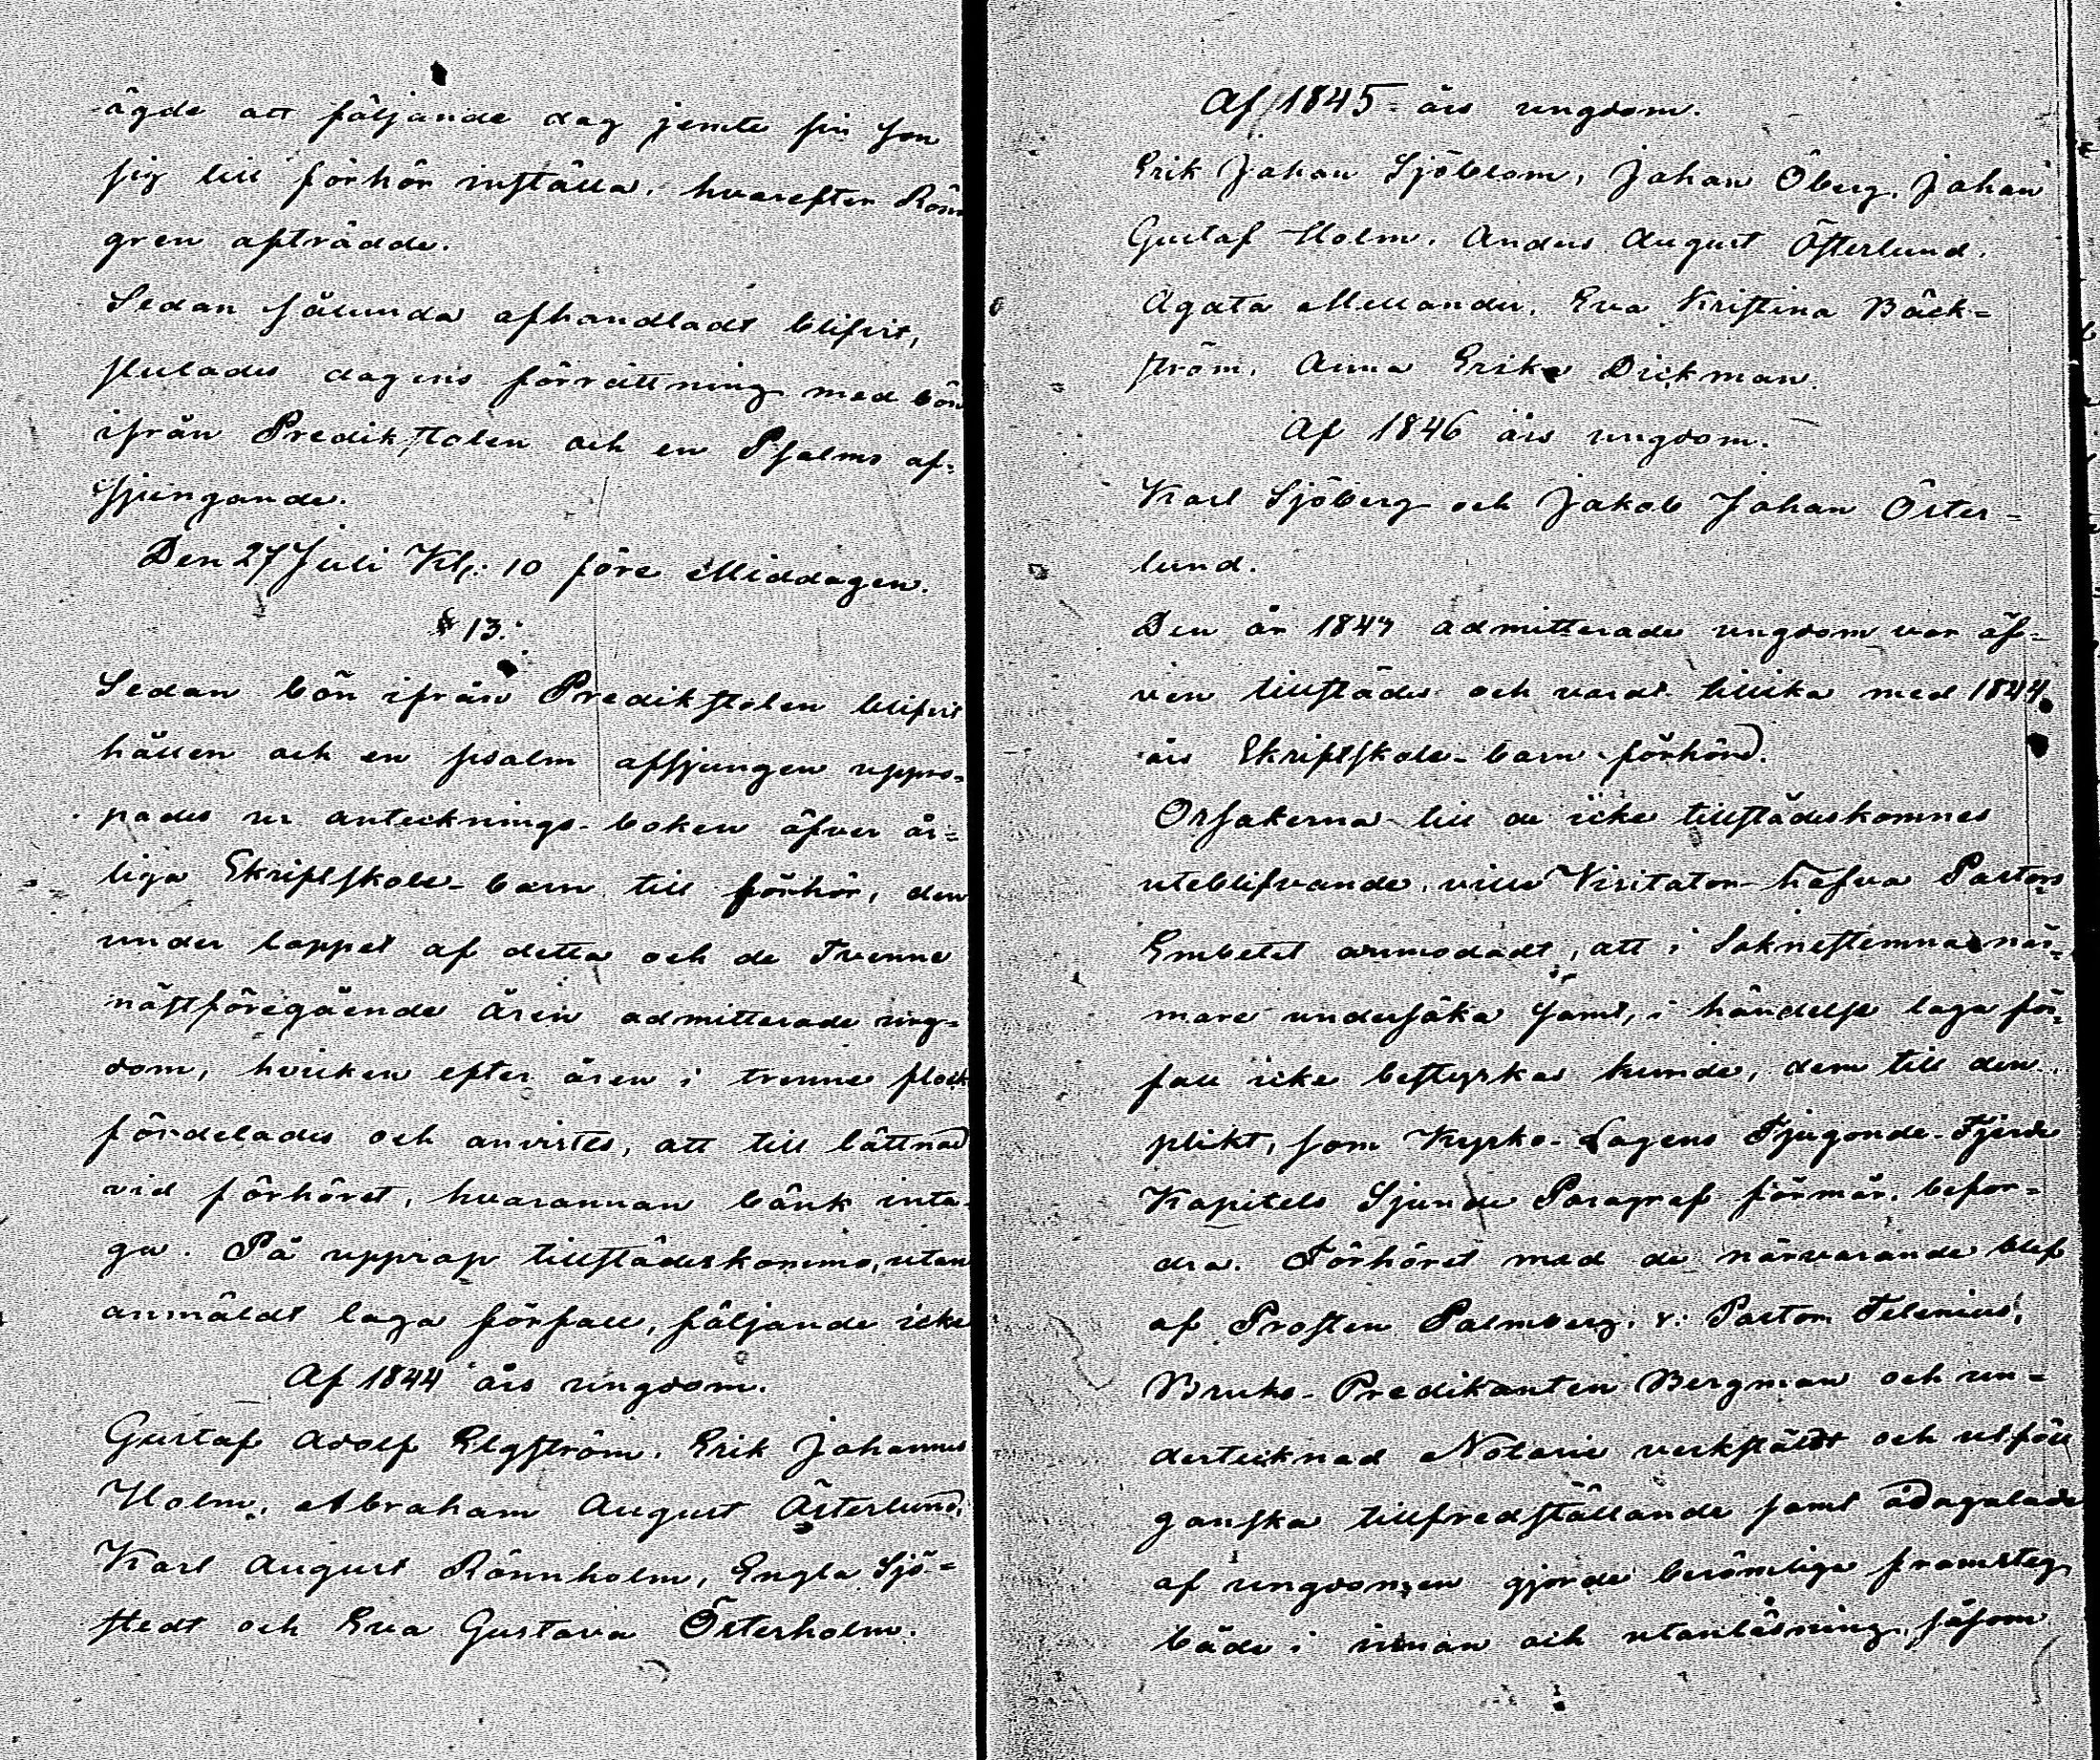 ägde att följande dag jemte sin son
sig till förhör inställa, hvarefter Rön
gren afträdde.
Sedan sålunda afhandladt blifvit,
slutades dagens förrättning med bön
ifrån Predikstolen och en Psalms af-
sjungande.
Den 27 Juli Kl. 10 före Middagen.
§ 13.
Sedan bön ifrån Predikstolen blifvit
hållen och en psalm afsjungen uppro-
pades ur antecknings-boken öfver år-
liga Skriftskole-barn till förhör, den
under loppet af detta och de Tvenne
nästföregående åren admitterade ung-
dom, hvilken efter åren i trenne flock
fördelades och anvistes, att till lättnad
vid förhöret, hvarannan bänk inta-
ga. På upprop tillstädeskommo, utan
anmäldt laga förfall, följande icke
Af 1844 års ungdom.
Gustaf Adolf Elgström, Erik Johannes
Holm, Abraham August Österlund,
Karl August Rönnholm, Engla Sjö-
stedt och Eva Gustava Österholm.
Af 1845 års ungdom.
Erik Johan Sjöblom, Johan Öberg, Johan
Gustaf Holm, Anders August Österlund,
Agata Mellander, Eva Kristina Bäck-
ström, Anna Erika Dickman.
Af 1846 års ungdom.
Karl Sjöberg och Jakob Johan Öster-
lund.
Den år 1847 admitterade ungdom var äf-
ven tillstädes och vardt tillika med 1844
års Skriftskole-barn förhörd.
Orsakerna till de icke tillstädeskomnes
uteblifvande, ville Visitator hafva Pastors
Embetet anmodadt, att i Sakristian när-
mare undersöka samt, i händelse laga för-
fall icke bestyrkas kunde, dem till den
plikt, som Kyrko-Lagens Tjugonde-Fjerde
Kapitels Sjunde Paragraf förmår, befor-
dra. Förhöret med de närvarande blef
af Prosten Palmberg, v. Pastor Telenius,
Bruks-Predikanten Bergman och un-
dertecknad Notarie verkstäldt och utföll
ganska tillfredställande samt ådagalade
af ungdomen gjorde berömliga framsteg
både i innan och utanläsning, såsom